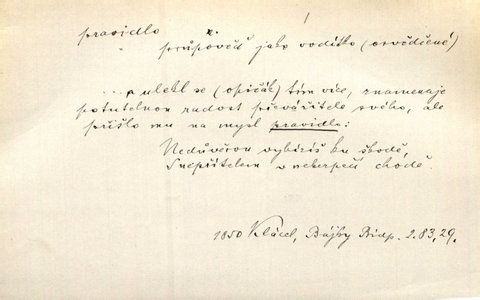 pravidlo
průpověď jako vodítko (osvědčené)
... ulekl se (opičák) tím více, znamenaje
potutelnou radost převážitele svého, ale
přišlo mu na mysl pravidlo:
Nedůvěrou vybízíš ku škodě,
S nepřítelem v nebezpečí chodě.
1850 Klácel, Bájky Bidp. 2.83,29.